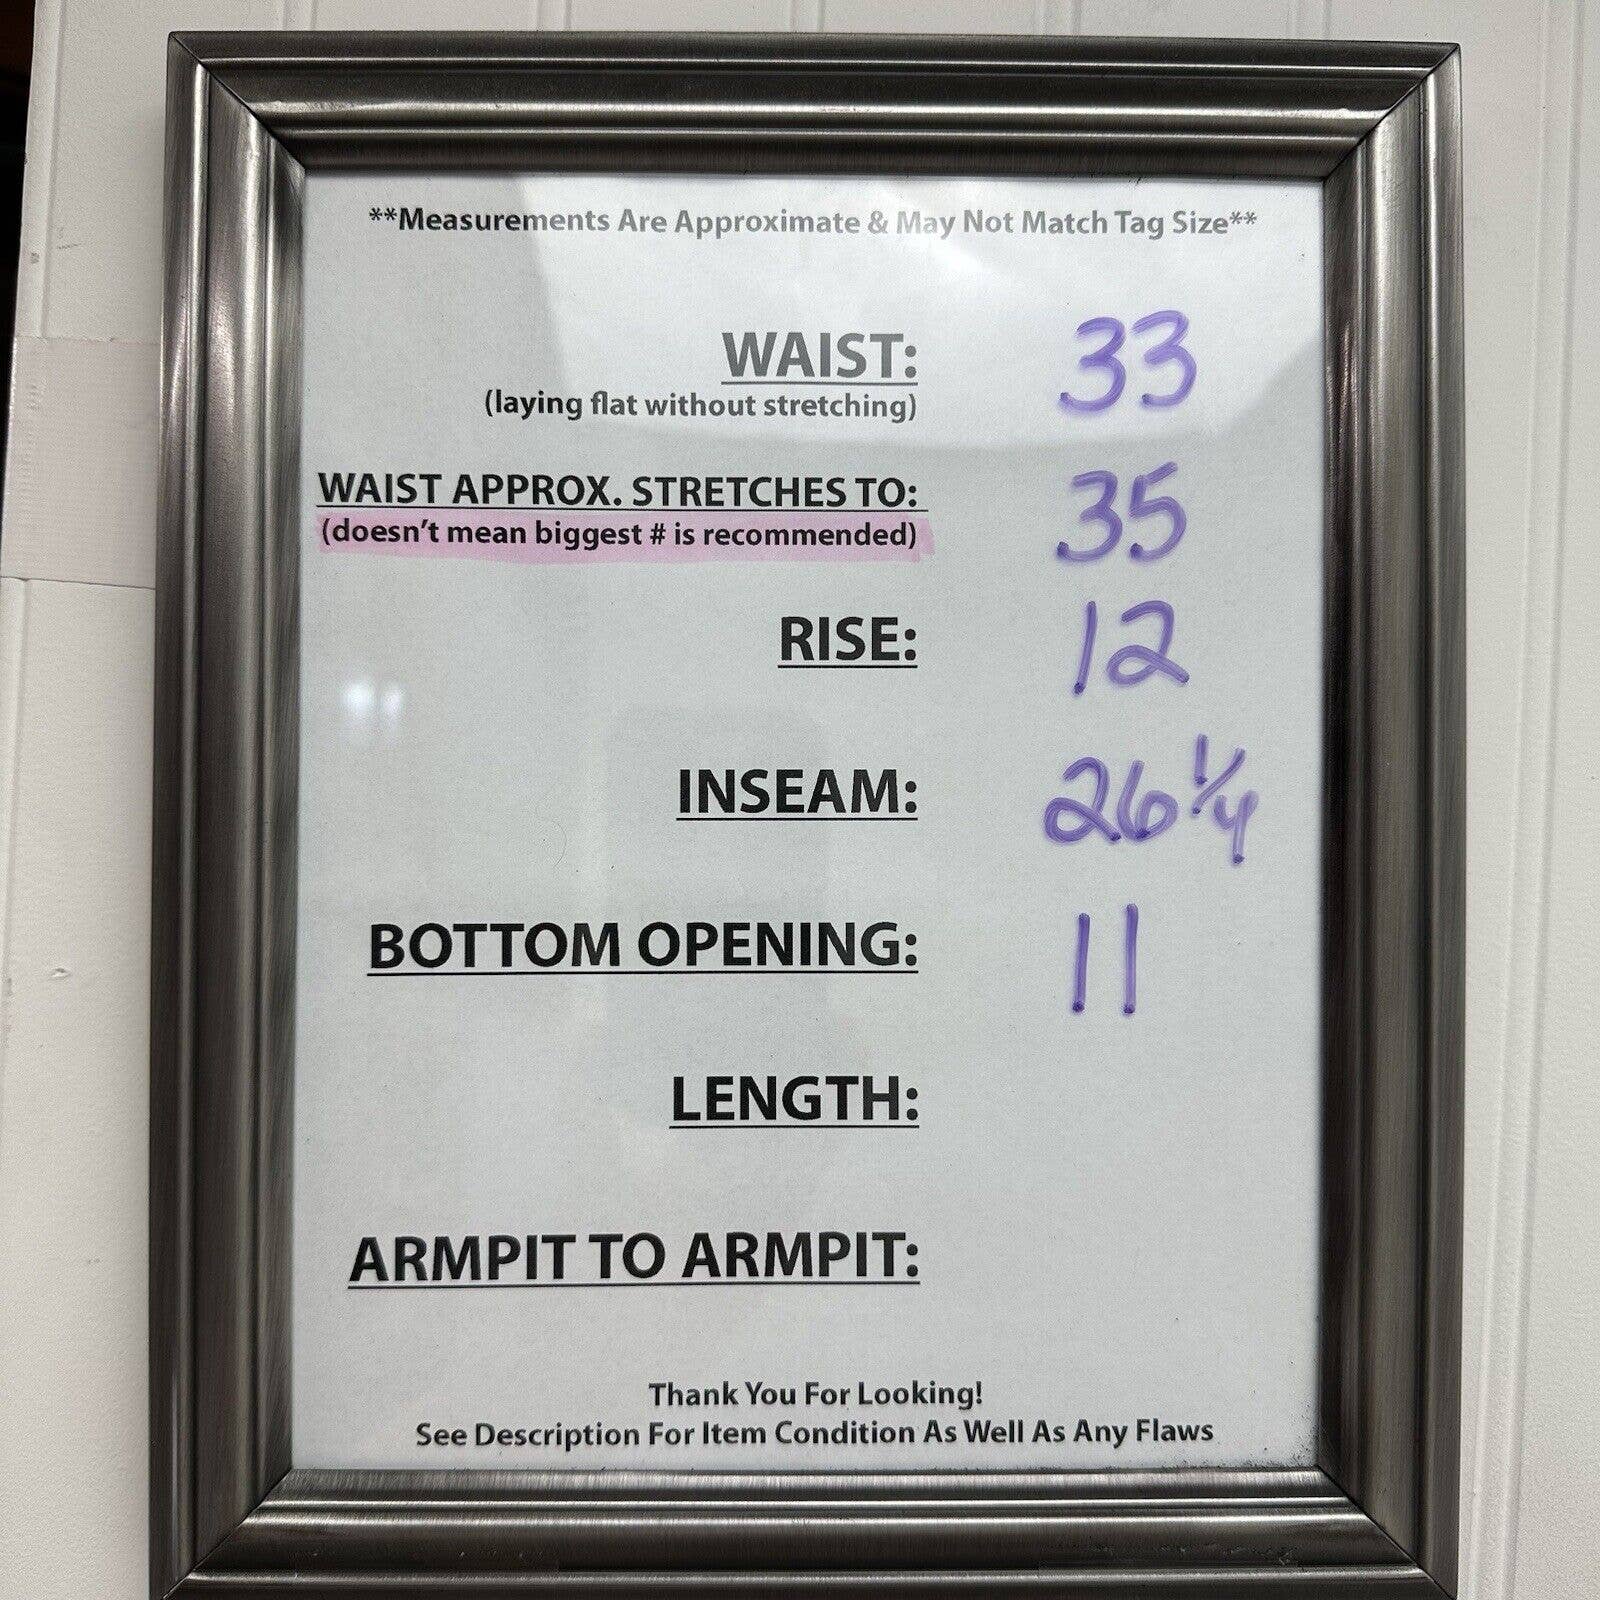 **Measurements Are Approximate & May Not Match Tag Size**
WAIST: 33
(laying flat without stretching)
WAIST APPROX. STRETCHES TO: 35
(doesn't mean biggest # is recommended)
RISE: 12
INSEAM: 26 1/4
BOTTOM OPENING: 11
LENGTH:
ARMPIT TO ARMPIT:
Thank You For Looking!
See Description For Item Condition As Well As Any Flaws